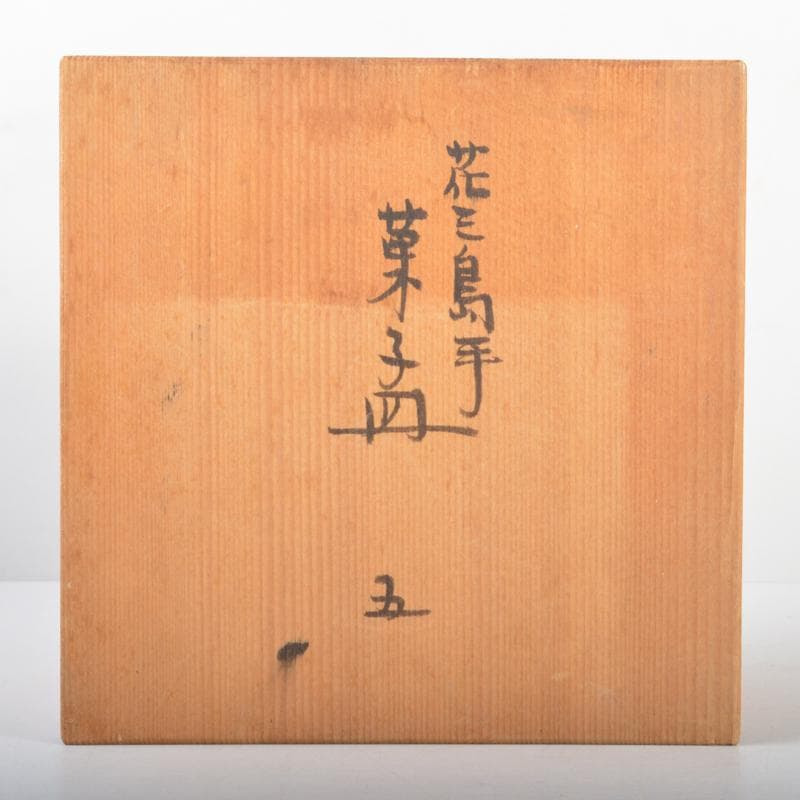 花三島手
菓子皿
五